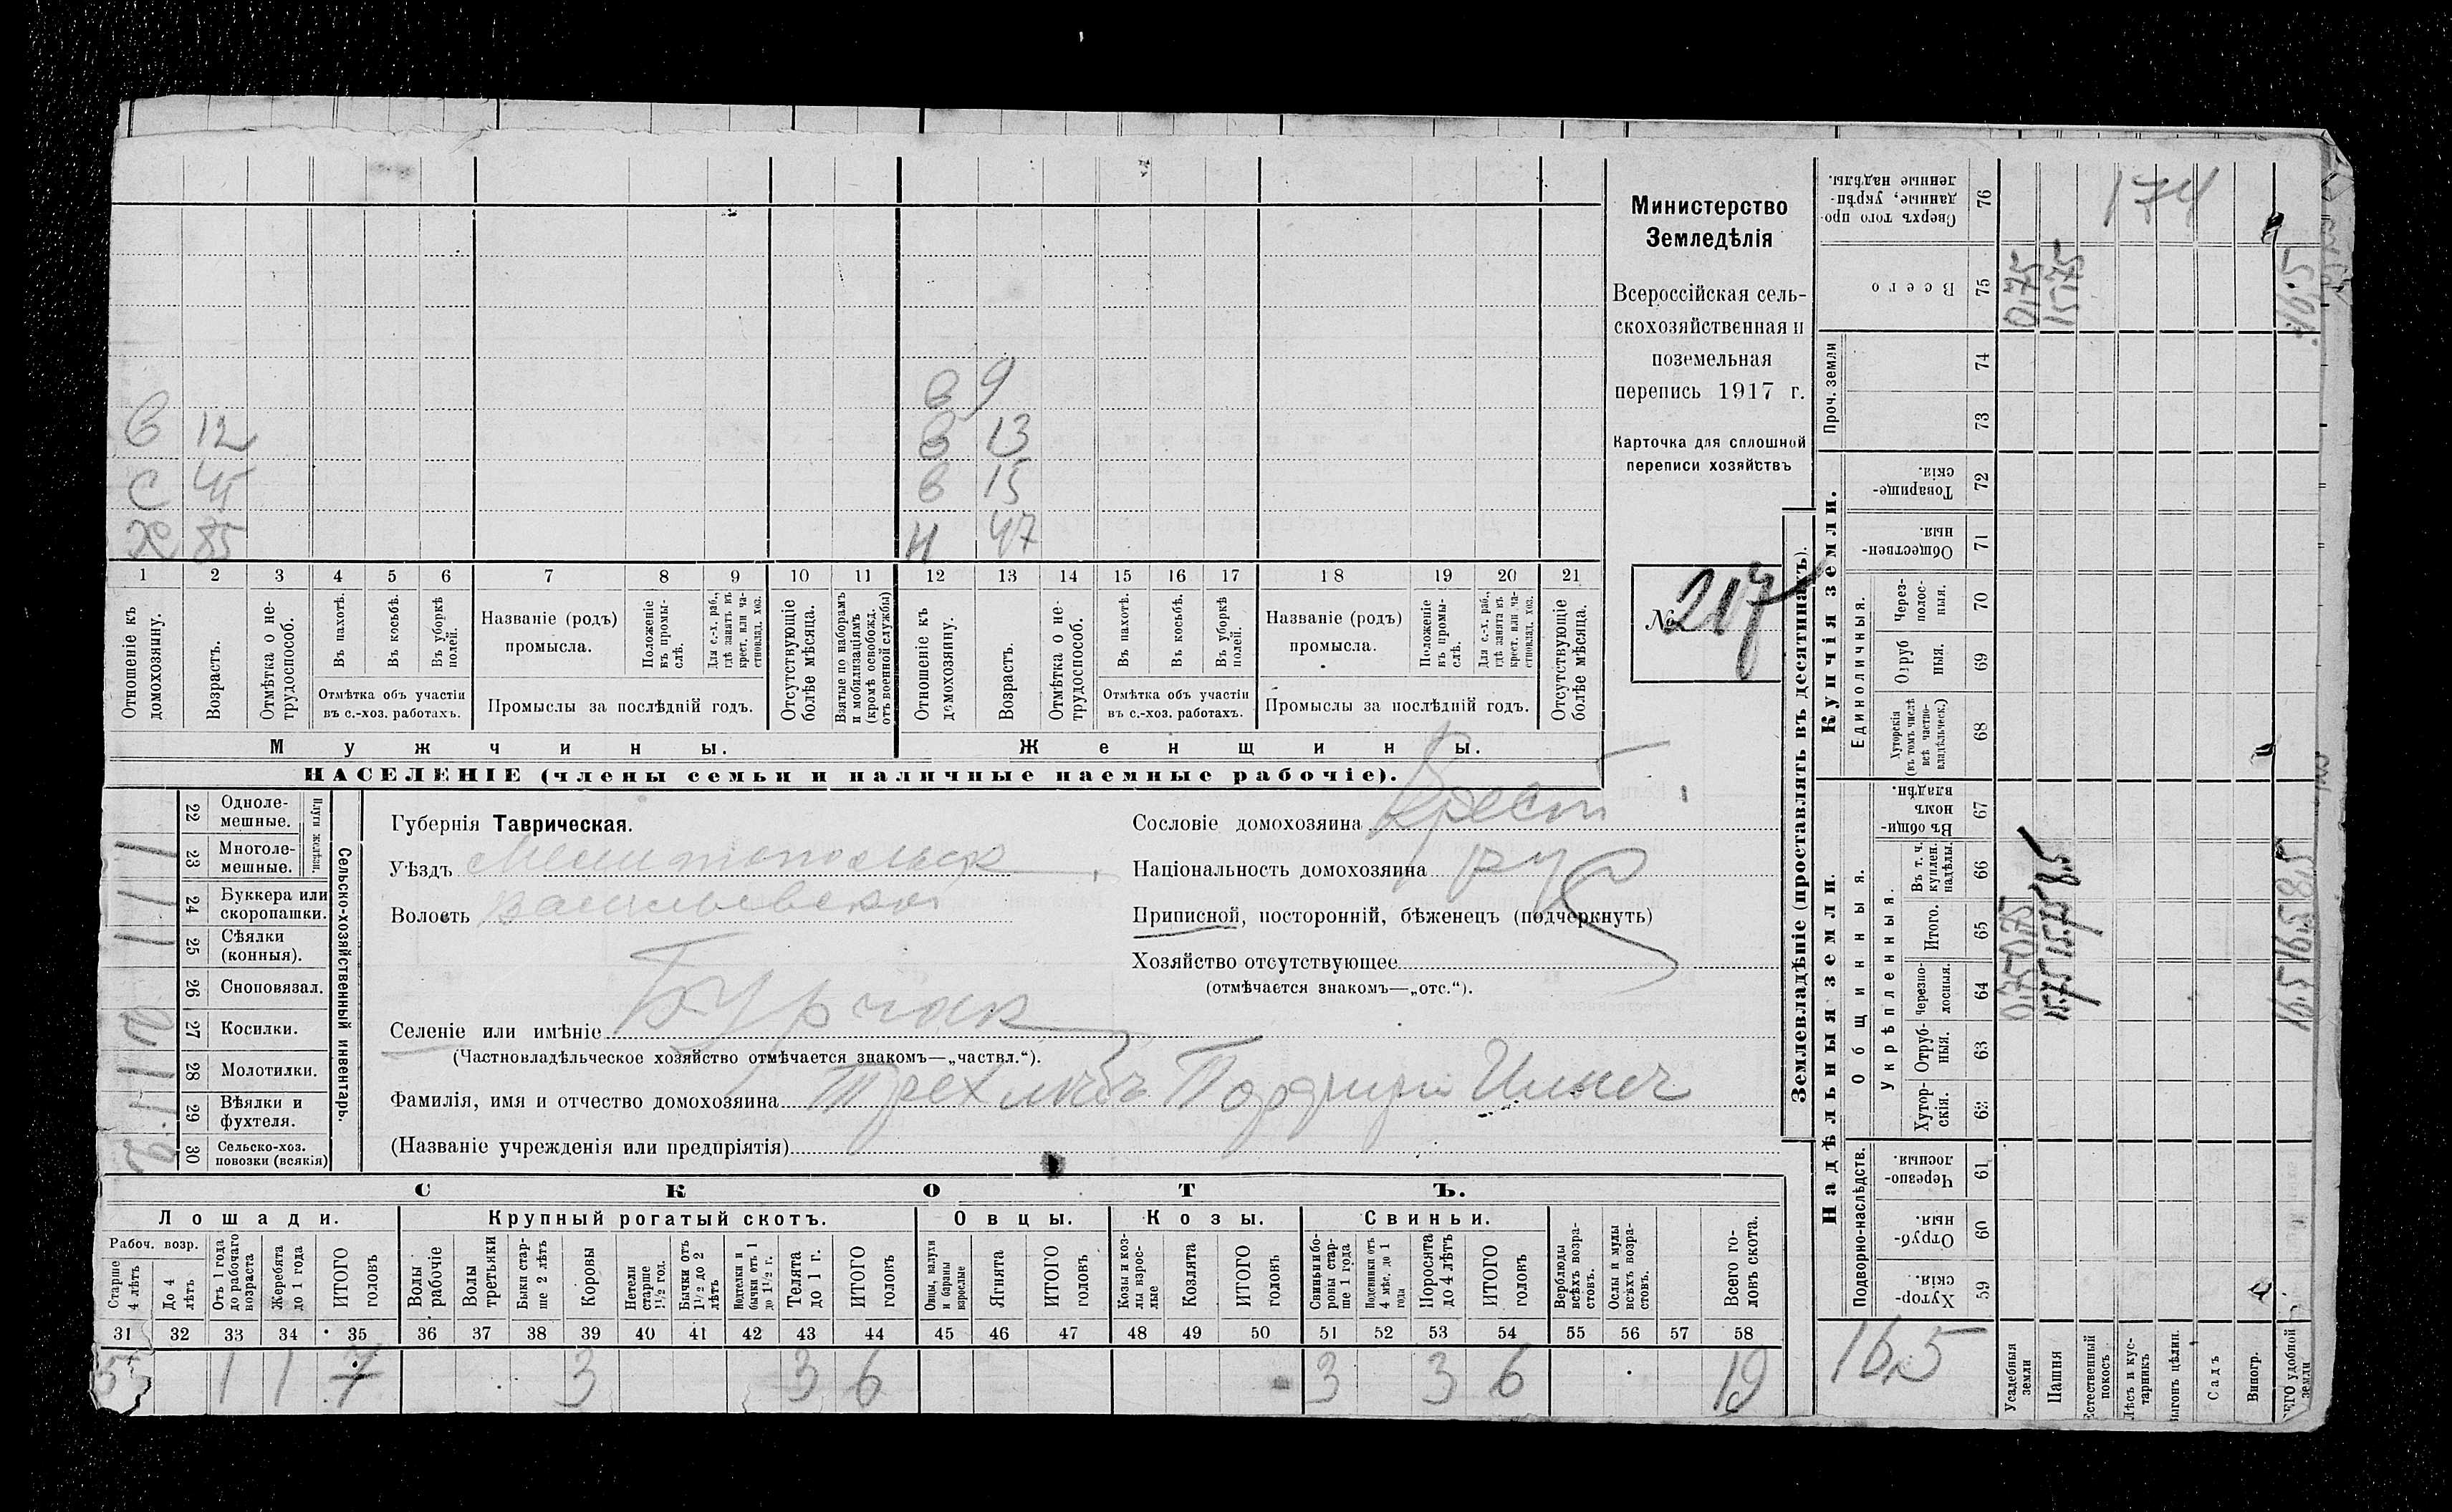 Министерство
Земледѣлія
Всероссійская сель-
скохозяйственная и
поземельная
перепись 1917 г.
Карточка для сплошной
переписи хозяйствъ
№ 217
в 9
в 12 в 13
с 45 в 15
х 85 н 47
1 2 3 4 5 6 7 8 9 10 11 12 13 14 15 16 17 18 19 20 21
Отношеніе къ домохозяину.
Возрастъ.
Отмѣтка о не-трудоспособ.
Въ пахотѣ.
Въ косьбѣ.
Въ уборкѣ полей.
Отмѣтка объ участіи
въ с.-хоз. работахъ.
Названіе (родъ)
промысла.
Положеніе въ промы-слѣ.
Для с.-х. раб., гдѣ занятъ въ крест. или ча-стновлад. хоз.
Промыслы за послѣдній годъ.
Отсутствующіе болѣе мѣсяца.
Взятые по наборамъ и мобилизаціямъ (кромѣ освобожд. отъ военной службы)
Отношеніе къ домохозяину.
Возрастъ.
Отмѣтка о не-трудоспособ.
Въ пахотѣ.
Въ косьбѣ.
Въ уборкѣ полей.
Отмѣтка объ участіи
въ с.-хоз. работахъ.
Названіе (родъ)
промысла.
Положеніе въ промы-слѣ.
Для с.-х. раб., гдѣ занята въ крест. или ча-стновлад. хоз.
Промыслы за послѣдній годъ.
Отсутствующіе болѣе мѣсяца.
Мужчины. Женщины.
НАСЕЛЕНІЕ (члены семьи и наличные наемные рабочіе).
Сельско-хозяйственный инвентарь.
Плуги желѣзн.
22 Одноле-мешные.
23 Многоле-мешные. 1
24 Буккера или скоропашки. 1
25 Сѣялки (конныя). 1
26 Сноповязал.
27 Косилки.
28 Молотилки. 1
29 Вѣялки и фухтеля. 1
30 Сельско-хоз. повозки (всякія)
Губернія Таврическая.
Уѣздъ Мелитопольск
Волость Васильевская
Сословіе домохозяина Крест
Національность домохозяина ру
Приписной, посторонній, бѣженецъ (подчеркнуть)
Хозяйство отсутствующее
(отмѣчается знакомъ—„отс.“).
Селеніе или имѣніе Бурчак
(Частновладѣльческое хозяйство отмѣчается знакомъ—„частвл.“).
Фамилія, имя и отчество домохозяина Трехлѣбъ Порфирий Ильич
(Названіе учрежденія или предпріятія)
СКОТЪ.
Лошади. Крупный рогатый скотъ. Овцы. Козы. Свиньи.
Рабоч. возр.
Старше 4 лѣтъ
До 4 лѣтъ
Отъ 1 года до рабочаго возраста
Жеребята до 1 года
ИТОГО головъ
Волы рабочіе
Волы третьяки
Быки стар-ше 2 лѣтъ
Коровы
Нетели старше 1½ год.
Бычки отъ 1½ до 2 лѣтъ
Подтелки и бычки отъ 1 до 1½ г.
Телята до 1 г.
ИТОГО головъ
Овцы, валухи и бараны взрослые
Ягнята
ИТОГО головъ
Козы и коз-лы взрос-лые
Козлята
ИТОГО головъ
Свиньи и бо-ровы стар-ше 1 года
Подсвинки отъ 4 мѣс. до 1 года
Поросята до 4 лѣтъ
ИТОГО головъ
Верблюды всѣхъ возра-стовъ.
Ослы и мулы всѣхъ возра-стовъ.
Всего го-ловъ скота.
31 32 33 34 35 36 37 38 39 40 41 42 43 44 45 46 47 48 49 50 51 52 53 54 55 56 57 58
5 1 1 7 3 3 6 3 3 6 19
Землевладѣніе (проставлять въ десятинахъ).
Надѣльныя земли. Купчія земли.
Подворно-наслѣдств.
Общинныя.
Укрѣпленныя.
Единоличныя.
Проч. земли
59 Хутор-скія.
60 Отруб-ныя.
61 Черезпо-лосныя.
62 Хутор-скія.
63 Отруб-ныя.
64 Черезпо-лосныя.
65 Итого.
66 Въ т. ч. куплен. надѣлы.
67 Въ общи-номъ владѣн.
68 Хуторскія (въ томъ числѣ всѣ частно-владѣльческ.)
69 Отруб ныя.
70 Через-полос-ныя.
71 Обществен-ныя.
72 Товарище-скія.
73
74
75 Всего
76 Сверхъ того про-данные, укрѣп-ленные надѣлы.
174
16,5
Усадебныя земли 0,75 0,75 0,75
Пашня 15,75 15,75 8,5 15,75
Естественный покосъ
Лѣсъ и кус-тарникъ
Выгонъ цѣлин.
Садъ
Виногр.
удобной земли 16,5 16,5 8,5 16,5